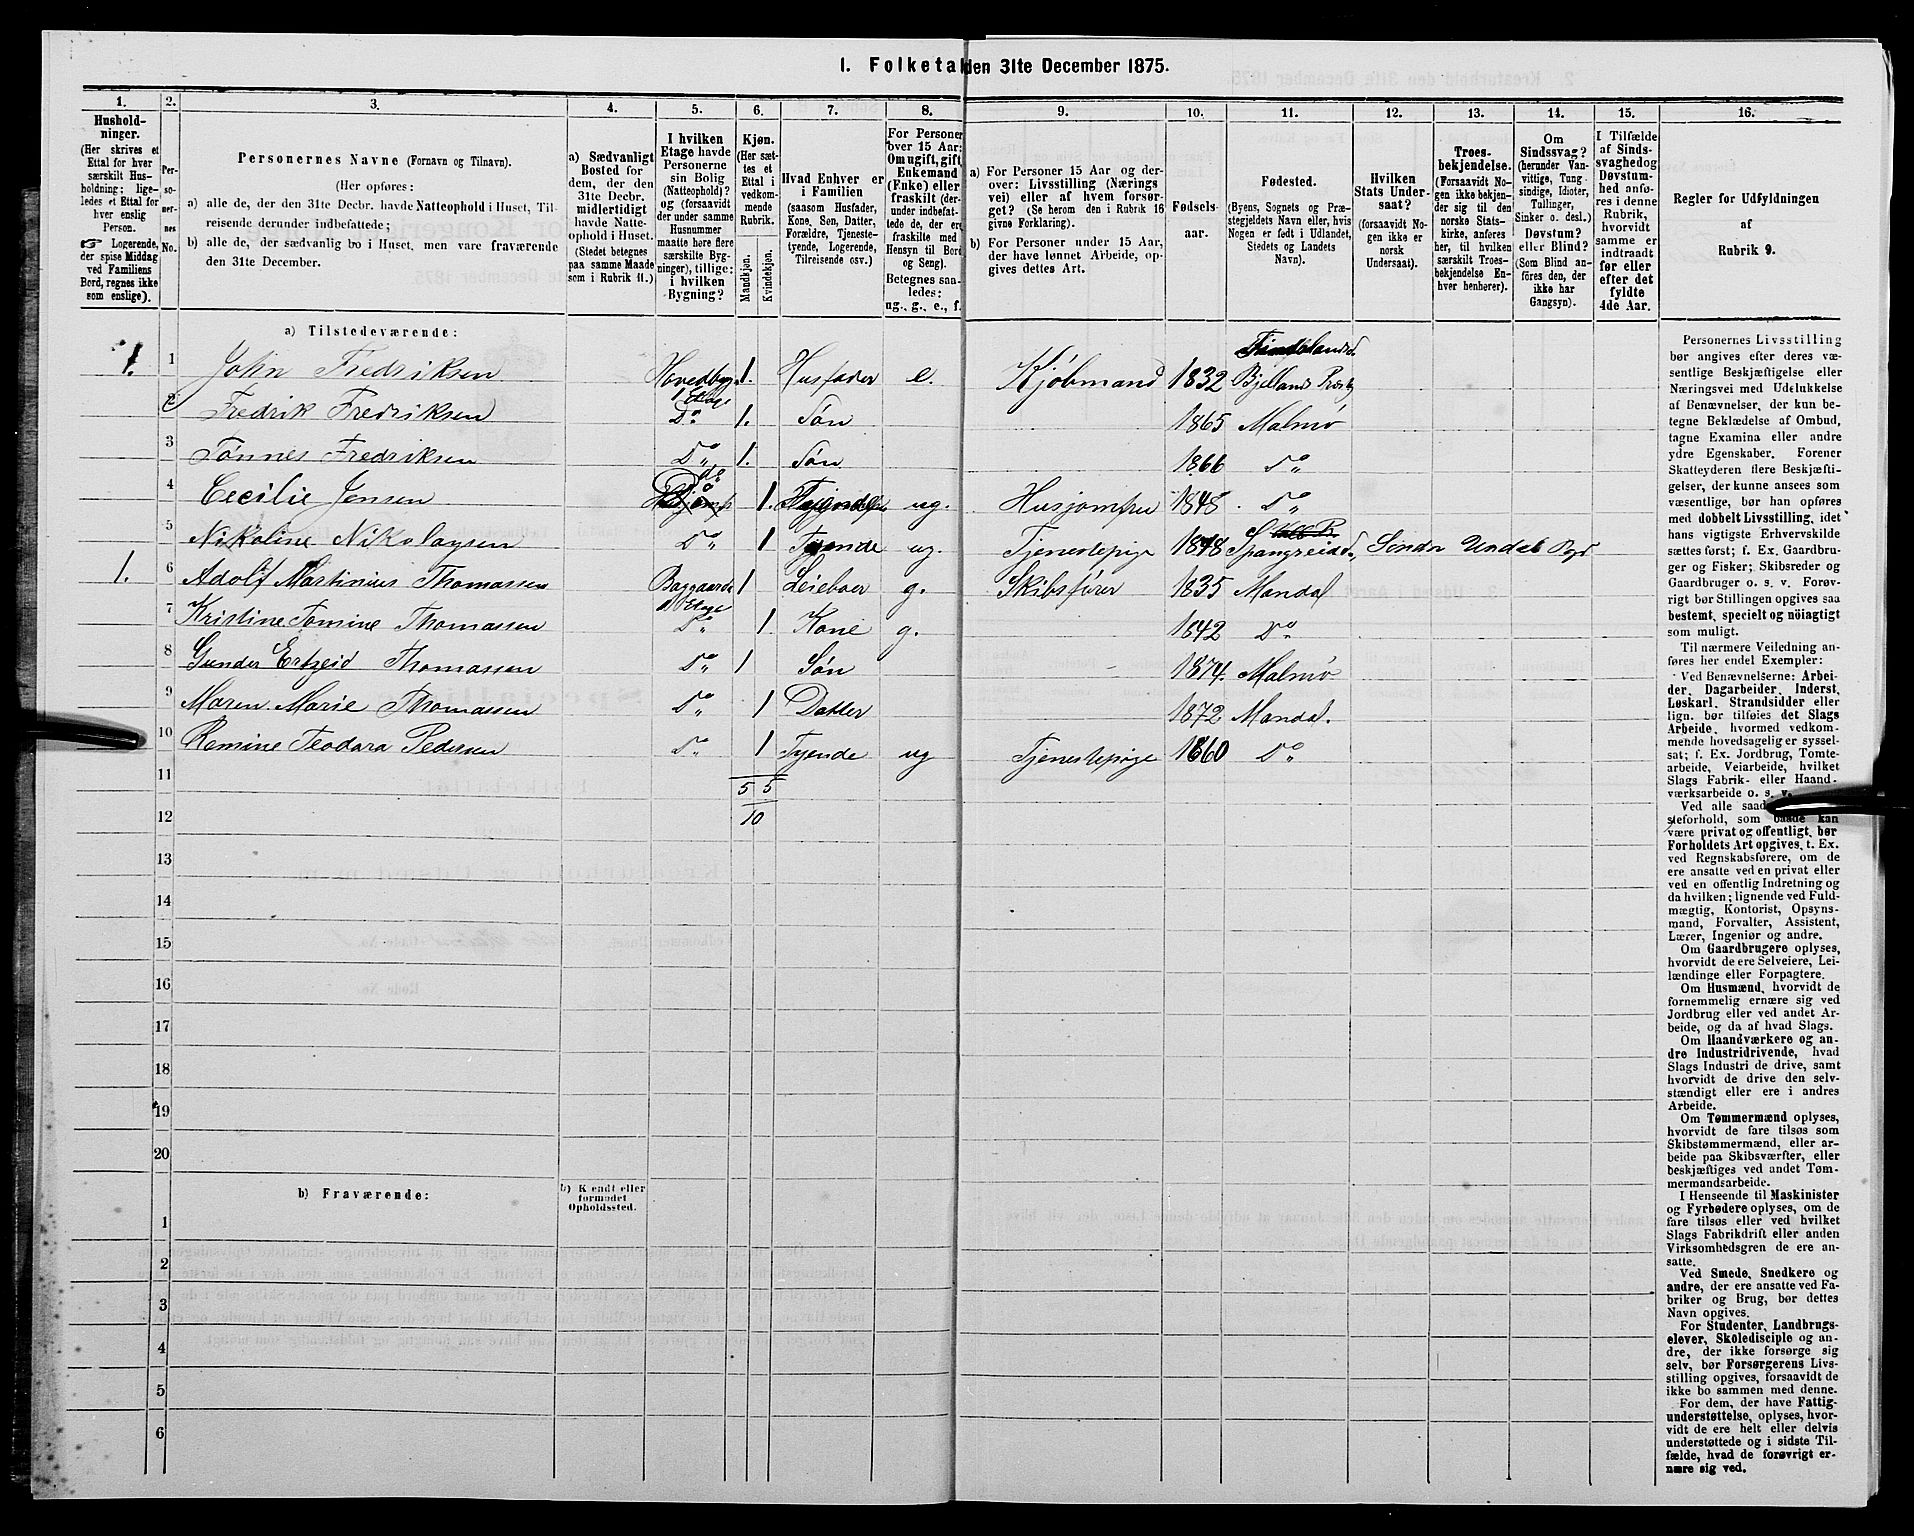 1. Folketal den 31te December 1875.
1. 2. 3. 4. 5. 6. 7. 8. 9. 10. 11. 12. 13. 14. 15. 16.
Hushold-
ninger.
(Her skrives et
Ettal for hver
særskilt Hus-
holdning; lige-
ledes et Ettal for
hver enslig
Person.
☞ Logerende,
der spise Middag
ved Familiens
Bord, regnes ikke
som enslige).
Per-
so-
ner-
nes
No.
Personernes Navne (Fornavn og Tilnavn).
(Her opføres:
a) alle de, der den 31te Decbr. havde Natteophold i Huset, Til-
reisende derunder indbefattede;
b) alle de, der sædvanlig bo i Huset, men vare fraværende
den 31te December.
a) Sædvanligt
Bosted for
dem, der den
31te Decbr.
midlertidigt
havde Natte-
ophold i Huset.
(Stedet betegnes
paa samme Maade
som i Rubrik 11.)
I hvilken
Etage havde
Personerne
sin Bolig
(Natteophold)?
og (forsaavidt
der under samme
Husnummer
maatte høre flere
særskilte Byg-
ninger), tillige:
i hvilken
Bygning?
Kjøn.
(Her sæt-
tes et
Ettal i
vedkom-
mende
Rubrik.
Mandkjøn.
Kvindekjøn.
Hvad Enhver er
i Familien
(saasom Husfader,
Kone, Søn, Datter,
Forældre, Tjeneste-
tyende, Logerende,
Tilreisende osv.)
For Personer
over 15 Aar:
Om ugift, gift,
Enkemand
(Enke) eller
fraskilt (der-
under indbefat-
tede de, der ere
fraskilte med
Hensyn til Bord
og Seng).
Betegnes saa-
ledes:
ug., g., e., f.
a) For Personer 15 Aar og der-
over: Livsstilling (Nærings
vei) eller af hvem forsør-
get? (Se herom den i Rubrik 16
givne Forklaring).
b) For Personer under 15 Aar,
der have lønnet Arbeide, op-
gives dettes Art.
Fødsels-
aar.
Fødested.
(Byens, Sognets og Præ-
stegjeldets Navn eller, hvis
Nogen er født i Udlandet,
Stedets og Landets
Navn).
Hvilken
Stats Under-
saat?
(forsaavidt No-
gen ikke er
norsk
Undersaat).
Troes-
bekjendelse.
(Forsaavidt No-
gen ikke bekjen-
der sig til den
norske Stats-
kirke, anføres
her, til hvilken
særskilt Troes-
bekjendelse En-
hver henhører).
Om
Sindssvag?
(herunder Van-
vittige, Tung-
sindige, Idioter,
Tullinger,
Sinker o. desl.)
Døvstum?
eller Blind?
(Som Blind an-
føres den, der
ikke har
Gangsyn).
I Tilfælde
af Sinds-
svaghed og
Døvstum-
hed anfø-
res i denne
Rubrik,
hvorvidt
samme er
indtraadt
før eller
efter det
fyldte
4de Aar.
Regler for Udfyldningen
af
Rubrik 9.
a) Tilstedeværende:
1. 1 John Fredriksen Hovedbyg. 1 Etage 1. Husfader e. Kjøbmand 1832 Findslands. Bjellands Prstg
2 Fredrik Fredriksen Do. 1. Søn 1865 Malmø
3 Tønnes Fredriksen Do 1. Søn 1866 Do
4 Cecilie Jensen Do 1. Tyende ug. Husjomfru 1848 Do
5 Nikoline Nikolaysen Do 1 Tyende ug. Tjenestepige 1848 Spangreid Søndr Undal
1. 6 Adolf Martinius Thomassen Baggaarde 1 Etage 1 Leieboer g. Skibsfører 1835 Mandal
7 Kristine Tomine Thomassen Do 1. Kone g. 1842 Do
8 Gunder Thomassen Do 1 Søn 1874. Malmø
9 Maren Marie Thomassen Do 1 Datter 1872 Mandal.
10 Romine Teodora Pedersen Do 1 Tyende ug Tjenestepige 1860 Do
11 5 5
12 10
13
14
15
16
17
18
19
20
b) Fraværende:
b) Kjendt eller
formodet
Opholdssted.
1
2
3
4
5
6
Personernes Livsstilling
bør angives efter deres væ-
sentlige Beskjæftigelse eller
Næringsvei med Udelukkelse
af Benævnelser, der kun be-
tegne Beklædelse af Ombud,
tagne Examina eller andre
ydre Egenskaber. Forener
Skatteyderen flere Beskjæfti-
gelser, der kunne ansees som
væsentlige, bør han opføres
med dobbelt Livsstilling, idet
hans vigtigste Erhvervskilde
sættes først; f. Ex. Gaardbru-
ger og Fisker; Skibsreder og
Gaardbruger o. s. v. Forøv-
rigt bør Stillingen opgives saa
bestemt, specielt og nöiagtigt
som muligt.
Til nærmere Veiledning an-
føres her endel Exempler:
Ved Benævnelserne: Arbei-
der, Dagarbeider, Inderst,
Løskarl, Strandsidder eller
lign. bør tilføies det Slags
Arbeide, hvormed vedkom-
mende hovedsagelig er syssel-
sat; f. Ex. Jordbrug, Tomte-
arbeide, Veiarbeide, hvilket
Slags Fabrik- eller Haand-
værksarbeide o. s. v.
Ved alle saad
steforhold, som baade kan
være privat og offentligt, bør
Forholdets Art opgives, t. Ex.
ved Regnskabsførere, om de
ere ansatte ved en privat eller
ved en offentlig Indretning og
da hvilken; lignende ved Fuld-
mægtig, Kontorist, Opsyns-
mand, Forvalter, Assistent,
Lærer, Ingeniør og andre.
Om Gaardbrugere oplyses,
hvorvidt de ere Selveiere, Lei-
lændinge eller Forpagtere.
Om Husmænd, hvorvidt de
fornemmelig ernære sig ved
Jordbrug eller ved andet Ar-
beide, og da af hvad Slags.
Om Haandværkere og an-
dre Industridrivende, hvad
Slags Industri de drive, samt
hvorvidt de drive den selv-
stændigt eller ere i andres
Arbeide.
Om Tømmermænd oplyses,
hvorvidt de fare tilsøs som
Skibstømmermænd, eller ar-
beide paa Skibsværfter, eller
beskjæftiges ved andet Tøm-
mermandsarbeide.
I Henseende til Maskinister
og Fyrbødere oplyses, om de
fare tilsøs eller ved hvilket
Slags Fabrikdrift eller anden
Virksomhedsgren de ere an-
satte.
Ved Smede, Snedkere og
andre, der ere ansatte ved Fa-
briker og Brug, bør dettes
Navn opgives.
For Studenter, Landbrugs-
elever, Skoledisciple og an-
dre, der ikke forsørge sig
selv, bør Forsørgerens Livs-
stilling opgives, forsaavidt de
ikke bo sammen med denne.
For dem, der have Fattig-
understøttelse, oplyses, hvor-
vidt de ere helt eller delvis
understøttede og i sidste Til-
fælde, hvad de forøvrigt er-
nære sig ved.